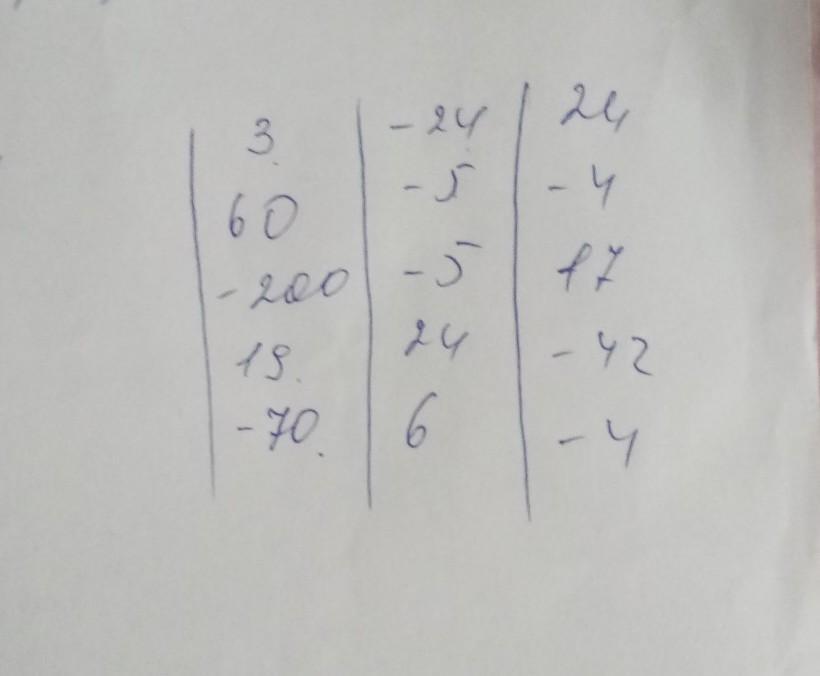 3. -24 24
60 -5 -4
-200 -5 17
19. 24 -42
-70. 6 -4